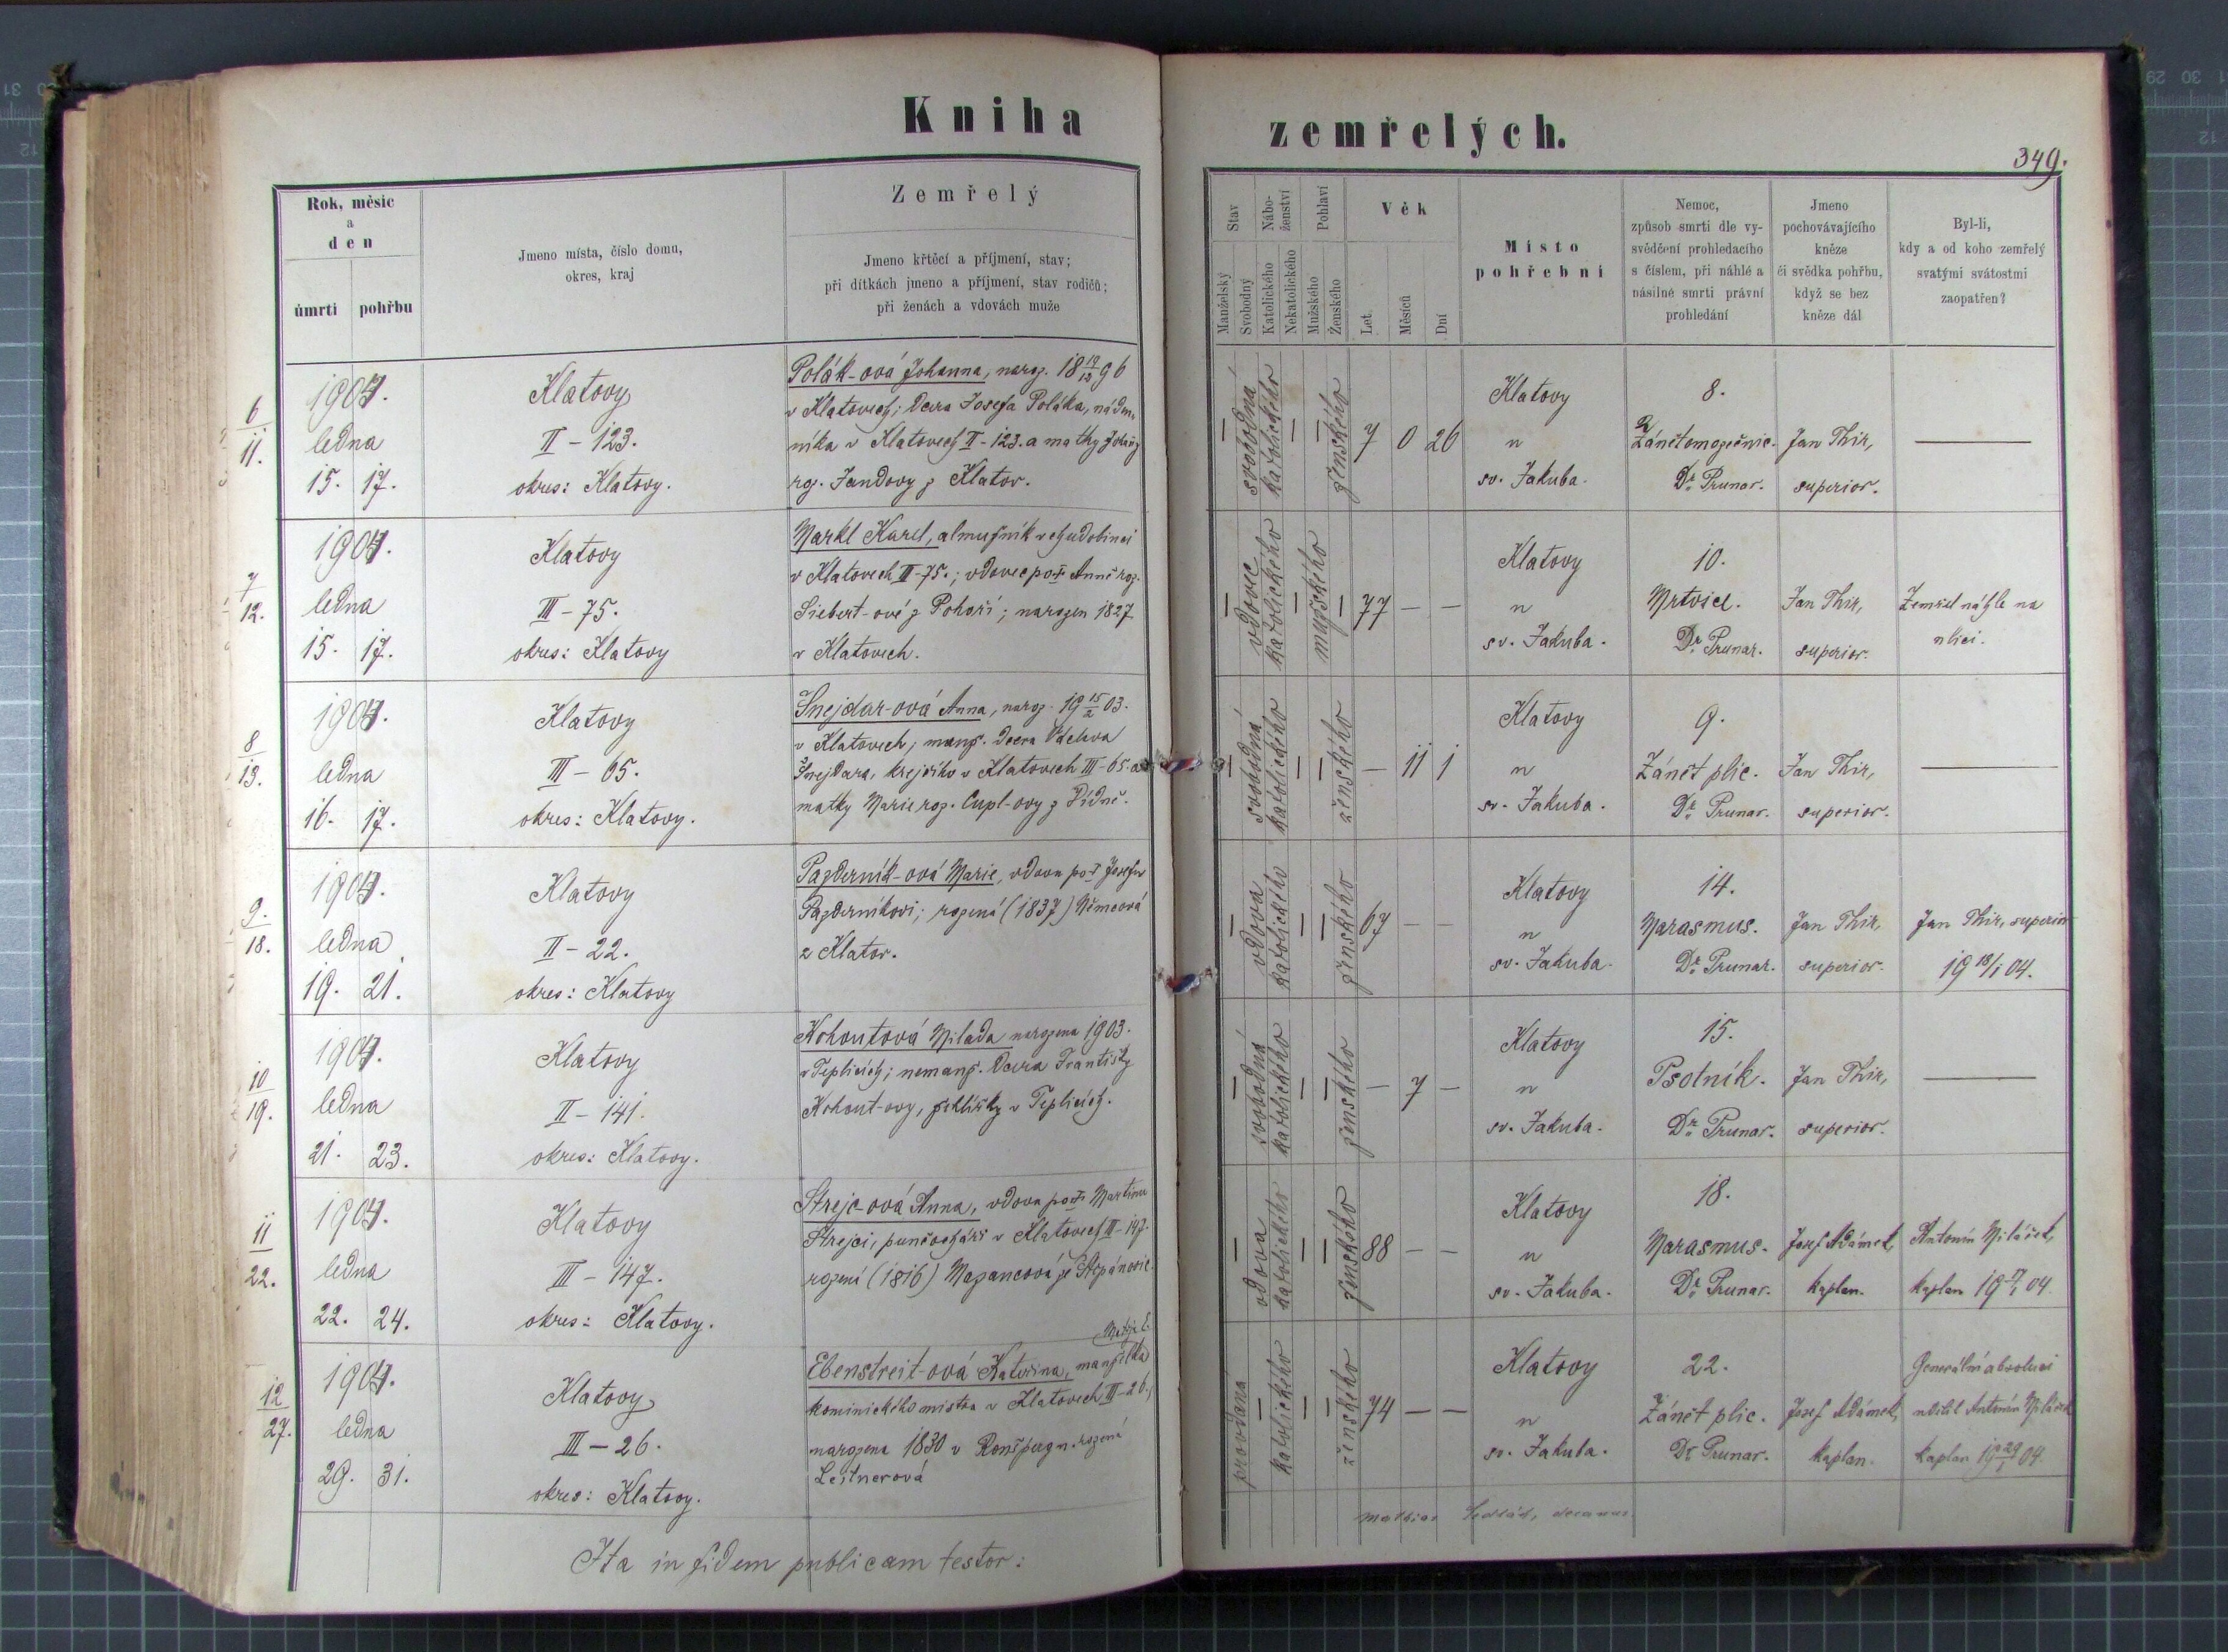 Kniha zemřelých.
349.
Rok, měsíc
a
den
úmrtí pohřbu
Jmeno místa, číslo domu,
okres, kraj
Zemřelý
Jmeno křtěcí a příjmení, stav;
při dítkách jmeno a příjmení, stav rodičů;
při ženách a vdovách muže
Stav
Manželský
Svobodný
Nábo-
ženství
Katolického
Nekatolického
Pohlaví
Mužského
Ženského
Věk
Let
Měsíců
Dní
Místo
pohřební
Nemoc,
způsob smrti dle vy-
svědčení prohledacího
s číslem, při náhlé a
násilné smrti právní
prohledání
Jmeno
pochovávajícího
kněze
či svědka pohřbu,
když se bez
kněze dál
Byl-li,
kdy a od koho zemřelý
svatými svátostmi
zaopatřen?
6
11.
1904.
ledna
15. 17.
Klatovy
II - 123.
okres: Klatovy.
Polák-ová Johanna, naroz. 18 19/12 96
v Klatovech; dcera Josefa Poláka, náden-
níka v Klatovech II-123. a matky Johany
roz. Jandovy z Klatov.
— svobodná katolického — — ženského 7 0 26
Klatovy
u
sv. Jakuba.
8.
Zánět mozečnic.
Dr. Prunar.
Jan Thir,
superior.
—
7
12.
1904.
ledna
15. 17.
Klatovy
III - 75.
okres: Klatovy
Markl Karel, almužník v chudobinci
v Klatovech III-75.; vdovec po † Anně roz.
Siebert-ové z Pohoří; narozen 1827
v Klatovech.
— vdovec katolického — mužského — 77 — —
Klatovy
u
sv. Jakuba.
10.
Mrtvice.
Dr. Prunar.
Jan Thir,
superior.
Zemřel náhle na
ulici.
8
13.
1904.
ledna
16. 17.
Klatovy
III - 65.
okres: Klatovy.
Šnejdar-ová Anna, naroz. 19 15/2 03.
v Klatovech, manž. dcera Václava
Šnejdara, krejčího v Klatovech III-65. a
matky Marie roz. Cupl-ovy z Vídně.
— svobodná katolického — — ženského — 11 1
Klatovy
u
sv. Jakuba.
9.
Zánět plic.
Dr. Prunar.
Jan Thir,
superior.
—
9.
18.
1904.
ledna
19. 21.
Klatovy
II - 22.
okres: Klatovy
Pazderník-ová Marie, vdova po † Josefu
Pazderníkovi; rozená (1837) Němcová
z Klatov.
— vdova katolického — — ženského 67 — —
Klatovy
u
sv. Jakuba.
14.
Marasmus.
Dr. Prunar.
Jan Thir,
superior.
Jan Thir, superior
19 18/1 04.
10
19.
1904.
ledna
21. 23.
Klatovy
II - 141.
okres: Klatovy.
Kohoutová Milada narozena 1903.
v Teplicích; nemanž. dcera Františky
Kohout-ovy, žehlířky v Teplicích.
— svobodná katolického — — ženského — 7 —
Klatovy
u
sv. Jakuba.
15.
Psotník.
Dr. Prunar.
Jan Thir,
superior.
—
11
22.
1904.
ledna
22. 24.
Klatovy
III - 147.
okres: Klatovy.
Strejc-ová Anna, vdova po † Martinu
Strejci, punčocháři v Klatovech III-147.
rozená (1816) Mazancová ze Štěpánovic.
— vdova katolického — — ženského 88 — —
Klatovy
u
sv. Jakuba.
18.
Marasmus.
Dr. Prunar.
Josef Adámek,
kaplan.
Antonín Miláček,
kaplan 19 17/1 04.
12
27.
1904.
ledna
29. 31.
Klatovy
III - 26.
okres: Klatovy.
Matěje E.
Ebenstreit-ová Kateřina, manželka
kominického mistra v Klatovech III-26.,
narozena 1830 v Ronšpergu rozená
Leitnerová
provdaná — katolického — — ženského 74 — —
Klatovy
u
sv. Jakuba.
22.
Zánět plic.
Dr. Prunar.
Josef Adámek,
kaplan.
Generální absoluci
udělil Antonín Miláček
kaplan 19 29/1 04.
Ita in fidem publicam testor:
Mathias Sedlák, decanus.